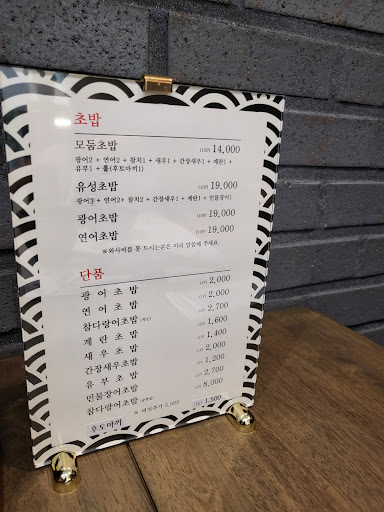 초밥
모둠초밥 (10P) 14,000
광어2 + 연어2 + 참치1 + 새우1 + 간장새우1 + 계란1 +
유부1 + 롤(후토마끼1)
유성초밥 (10P) 19,000
광어3 + 연어2+ 참치2 + 간장새우1 + 계란1 + 민물장어1
광어초밥 (10P) 19,000
연어초밥 (10P) 19,000
※와사비를 못 드시는분은 미리 말씀해 주세요.
단품
광어초밥 (1P) 2,000
연어초밥 (1P) 2,000
참다랑어초밥 2,700
계란초밥 (1P) 1,600
새우초밥 (1P) 1,400
간장새우초밥 (1P) 2,000
유부초밥 (1P) 1,200
민물장어초밥 (1P) 2,700
참다랑어초밥 (1P) 8,000
5,000
후토마끼 (1P) 1,500